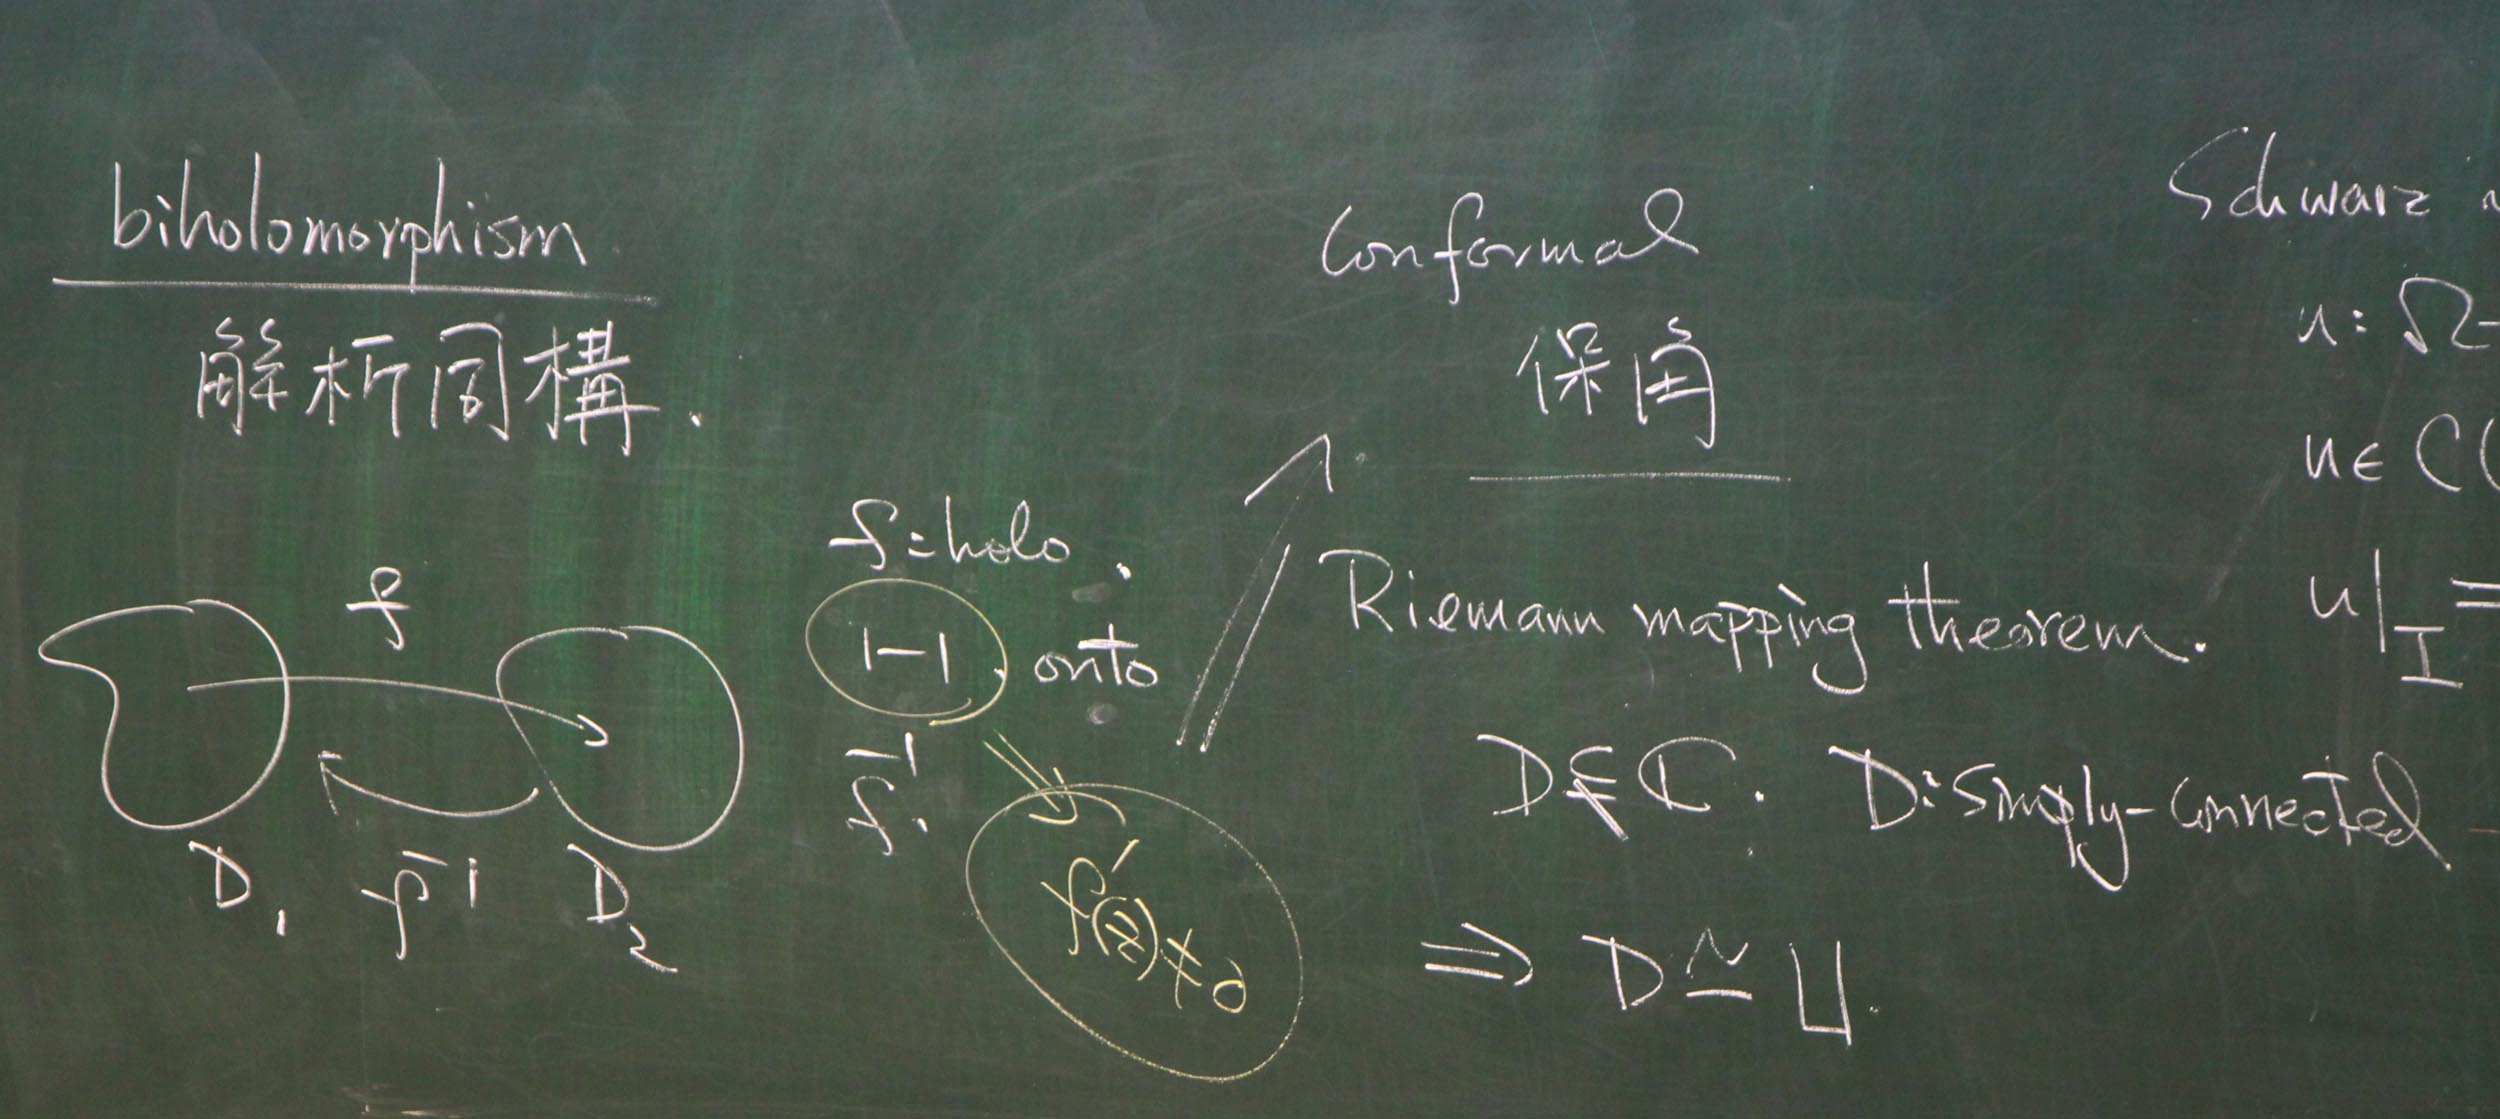 biholomorphism
解析同構.
f
D₁ f⁻¹ D₂
f:holo.
1-1. onto
f⁻¹.
f'(z)≠0
Conformal
保角
Riemann mapping theorem.
D⊊ℂ. D:simply-connected
⇒ D≃U.
Schwarz
u:Ω-
u∈C(
u|_I=